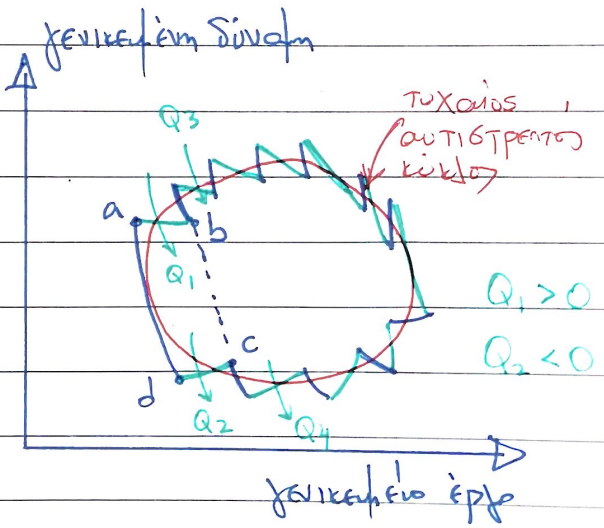 γενικευμένη δύναμη
τυχαίος
αντιστρεπτός
κύκλος
Q3
a
b
Q1
Q1 > 0
Q2 < 0
c
d
Q2
Q4
γενικευμένο έργο